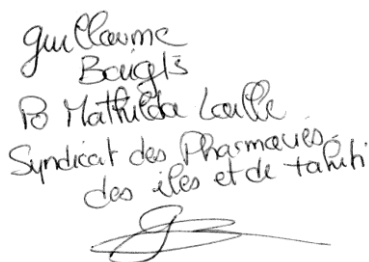 Guillaume
Bouglé
Po Mathilda Laille
Syndicat des Pharmacies
des îles et de tahiti